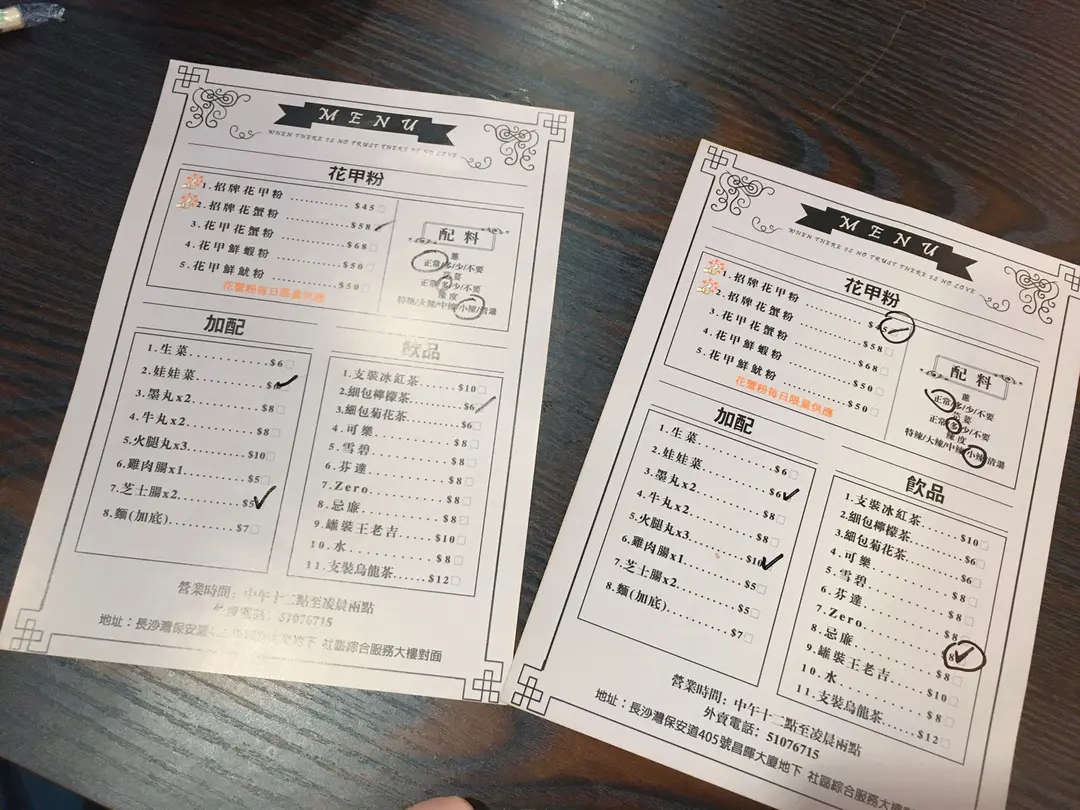 MENU
WHEN THERE IS NO TRUST THERE IS NO LOVE
花甲粉
1.招牌花甲粉 ............ $45
2.招牌花蟹粉 ............ $58
3.花甲花蟹粉 ............ $68
4.花甲鮮蝦粉 ............ $50
5.花甲鮮魷粉 ............ $50
花蟹粉每日限量供應
配料
蔥
正常/多/少/不要
芫荽
正常/多/少/不要
辣度
特辣/大辣/中辣/小辣/清湯
加配
1.生菜............$6
2.娃娃菜............$6
3.墨丸x2............$8
4.牛丸x2............$8
5.火腿丸x3............$10
6.雞肉腸x1............$5
7.芝士腸x2............$5
8.麵(加底)............$7
飲品
1.支裝冰紅茶......$10
2.細包檸檬茶......$6
3.細包菊花茶......$6
4.可樂............$8
5.雪碧............$8
6.芬達............$8
7.Zero............$8
8.忌廉............$8
9.罐裝王老吉......$10
10.水............$8
11.支裝烏龍茶......$12
營業時間：中午十二點至凌晨兩點
外賣電話：51076715
地址：長沙灣保安道 地下 社區綜合服務大樓對面
MENU
WHEN THERE IS NO TRUST THERE IS NO LOVE
花甲粉
1.招牌花甲粉 ............ $45
2.招牌花蟹粉 ............ $58
3.花甲花蟹粉 ............ $68
4.花甲鮮蝦粉 ............ $50
5.花甲鮮魷粉 ............ $50
花蟹粉每日限量供應
配料
蔥
正常/多/少/不要
芫荽
正常/多/少/不要
辣度
特辣/大辣/中辣/小辣/清湯
加配
1.生菜............$6
2.娃娃菜............$6
3.墨丸x2............$8
4.牛丸x2............$8
5.火腿丸x3............$10
6.雞肉腸x1............$5
7.芝士腸x2............$5
8.麵(加底)............$7
飲品
1.支裝冰紅茶......$10
2.細包檸檬茶......$6
3.細包菊花茶......$6
4.可樂............$8
5.雪碧............$8
6.芬達............$8
7.Zero............$8
8.忌廉............$8
9.罐裝王老吉......$10
10.水............$8
11.支裝烏龍茶......$12
營業時間：中午十二點至凌晨兩點
外賣電話：51076715
地址：長沙灣保安道405號昌暉大廈地下 社區綜合服務大樓